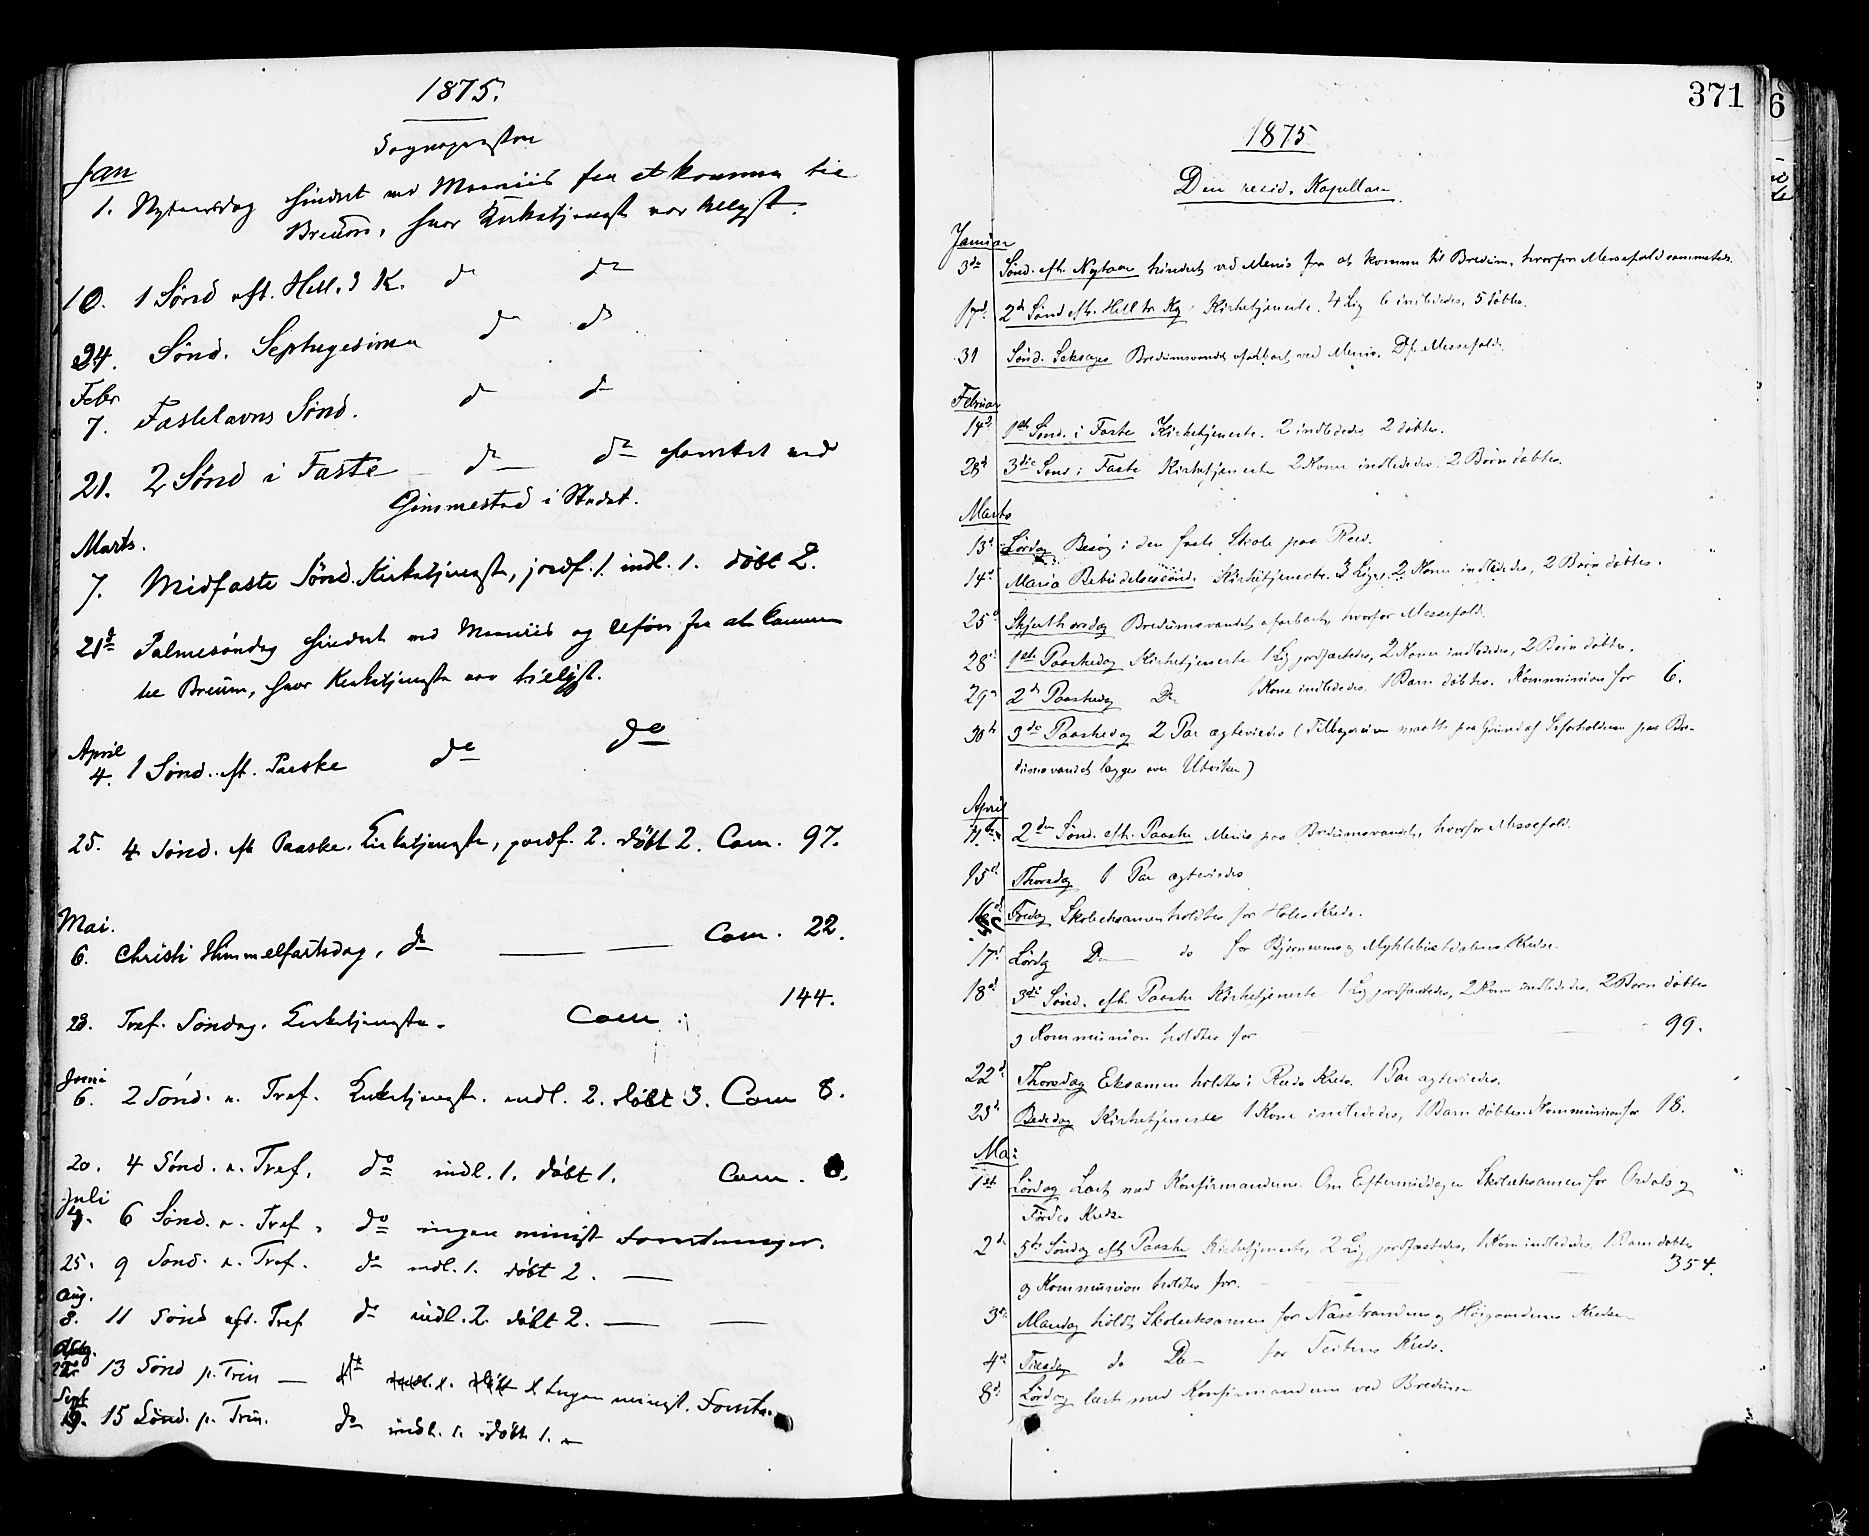 1875.
Sognepresten
Jan
1. Nytaarsdag hindret ved Meeniis fra at komme til
Breum, hvor Kirketjenest var tillyst.
10. 1 Sønd eft. Hell. 3 K. do do
24. Sønd. Septuagesima do do
Febr
7. Fastelavns Sønd. do do
21. 2 Sønd i Faste do do ved
Gimmestad i Stedet.
Marts.
7. Midfaste Sønd. Kirketjenest, jordf. 1. indl. 1. døbt 2.
21d Palmesøndag hindret ved Meeniis og Uføre fra at komme
til Breum, hvor Kirketjeneste var tillyst.
April
4. 1 Sønd. eft. Paaske do do
25. 4 Sønd. eft Paaske. Kirketjenste, jordf. 2. døbt 2. Com. 97.
Mai.
6. Christi Himmelfartsdag, do Com. 22.
23. Tref. Søndag. Kirketjengste. Com 144.
Juni
6. 2 Sønd. e. Tref. Kirketjengst. indl. 2. døbt 3. Com 8.
20. 4 Sønd. e. Tref. do indl. 1. døbt 1. Com. 8.
Juli
4. 6 Sønd. e. Tref. do ingen minist Forretninger.
25. 9 Sønd. e. Tref. do indl. 1. døbt 2.
Aug.
8. 11 Sønd eft. Tref do indl. 2. døbt 2.
22. 13 Sønd p. Trin do Ingen minist. Forretn.
Sept
19. 15 Sønd. p. Trin. do indl. 1. døbt 1.
371
1875
Den resid. Kapellan
Januar
3de Sønd. eft. Nytaar hindret ved Menis fra at komme til Bredum, hvorfor Messefald
17d. 2d Sønd eft. Hell tr Kg. Kirketjeneste. 4 Lig 6 indledes, 5 døbtes.
31 Sønd. Seksages Bredumsvandet ufarbart ved Menis. Df. Messefald.
Februar
14d. 1ste Sønd. i Faste Kirketjeneste. 2 indledede, 2 døbtes.
28d 3die Sønd i Faste Kirketjeneste 2 Koner indledede, 2 Børn døbtes.
Marts
13d Lørdag Besøg i den faste Skole paa Reed.
14d Maria Bebudelsessønd. Kirketjeneste. 3 Liger, 2 Koner indledede, 2 Børn døbtes.
25d Skjærthorsdag Bredumsvandet ufarbart, hvorfor Messefald.
28d 1ste Paaskedag Kirketjeneste 1 Lig jordfæstedes, 2 Koner indledede, 2 Børn døbtes.
29d 2d Paaskedag Do 1 Kone indledede, 1 Barn døbtes. Kommunion for 6.
30te 3die Paaskedag 2 Par ægteviedes (Tilbagereisen maatte paa Grund af Isforholdene paa Bre-
dumsvandet lægges over Utviken)
April
11te 2den Sønd. eft. Paaske Menis paa Bredumsvandet, hvorfor Messefald.
15d Thorsdag 1 Par ægteviedes
16d Fredag Skoleeksamen holdtes for Holes Kreds.
17d Lørdag Do do for Bjørnerems og Myklebustdalens Kredse.
18d 3die Sønd. eft. Paaske Kirketjeneste 1 Lig jordfæstedes, 2 Koner indledede, 2 Børn døbtes
og Kommunion holdtes for 99.
22d Thorsdag Eksamen holdtes i Reeds Kreds. 1 Par ægteviedes.
23d Bededag Kirketjeneste 1 Kone indledede, 1 Barn døbtes. Kommunion for 18.
Mai
1ste Lørdag Læst med Konfirmanderne. Om Eftermiddagen Skoleeksamen for Ordals og
Førdes Kredse
2d 5te Søndag eft Paaske Kirketjeneste, 2 Lig jordfæstedes, 1 Kone indledede, 1 Barn døbtes
og Kommunion holdtes for. 354.
3d Mandag holdt Skoleeksamen for Nærstrandens og Høigaardenes Kredse
4d Tirsdag do Do for Kreds.
8d. Lørdag læst med Konfirmanderne ved Bredum